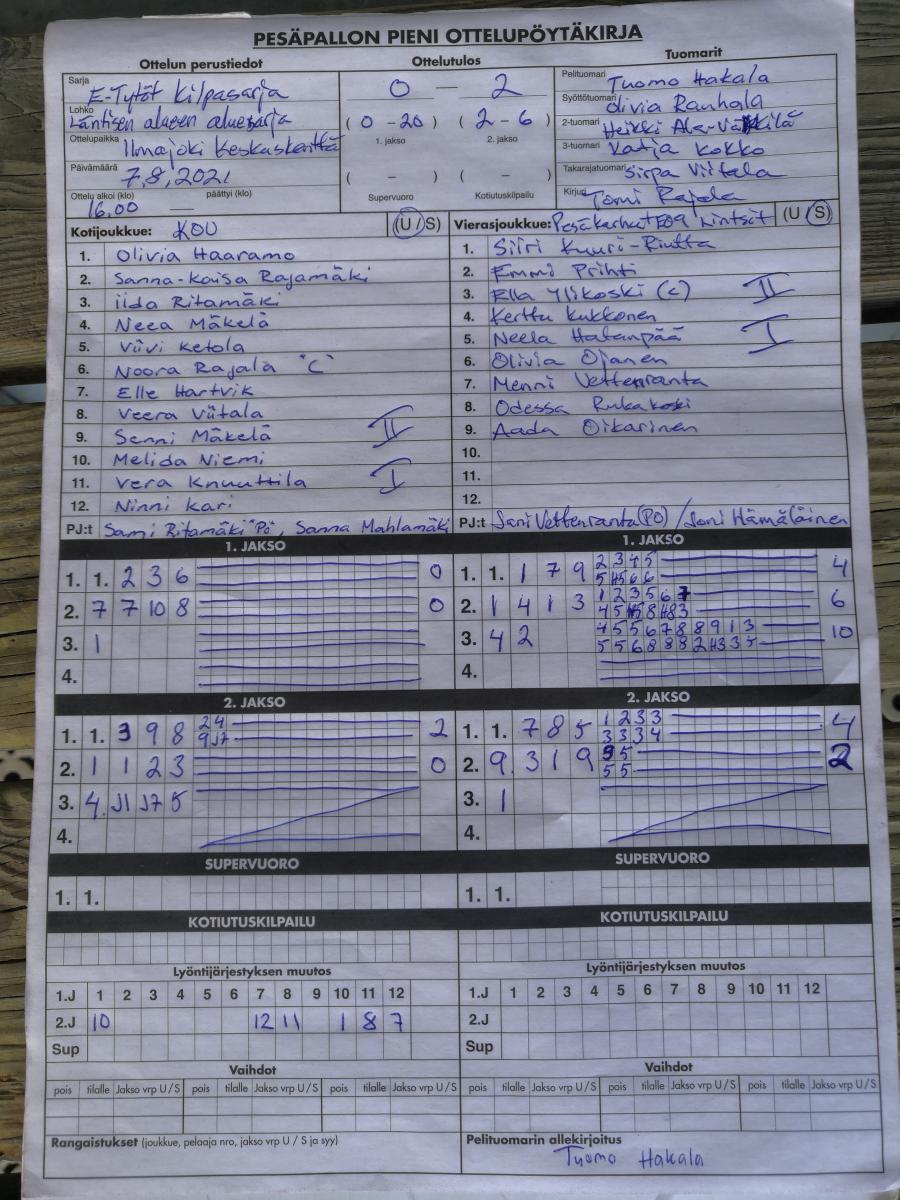 PESÄPALLON PIENI OTTELUPÖYTÄKIRJA
Ottelun perustiedot
Sarja E-Tytöt Kilpasarja
Lohko Läntisen alueen aluesarja
Ottelupaikka Ilmajoki keskuskenttä
Päivämäärä 7,8,2021
Ottelu alkoi (klo) päättyi (klo)
16.00 —
Ottelutulos
0 — 2
( 0 - 20 ) ( 2 - 6 )
1. jakso 2. jakso
( - ) ( - )
Supervuoro Kotiutuskilpailu
Tuomarit
Pelituomari Tuomo Hakala
Syöttötuomari Olivia Rauhala
2-tuomari Heikki Ala-
3-tuomari Katja Kokko
Takarajatuomari Sirpa Viitala
Kirjuri Tomi Rajala
Kotijoukkue: KOU (U / S)
1. Olivia Haaramo
2. Sanna-Kaisa Rajamäki
3. iida Ritamäki
4. Neea Mäkelä
5. Viivi Ketola
6. Noora Rajala "C"
7. Elle Hartvik
8. Veera Viitala
9. Senni Mäkelä II
10. Melida Niemi
11. Vera Knuuttila I
12. Ninni Kari
PJ:t Sami Ritamäki "PO", Sanna Mahlamäki
Vierasjoukkue: Pesäkarhut E09 Lintsit (U / S)
1. Siiri Kuuri-Riutta
2. Emmi Prihti
3. Ella Ylikoski (c) II
4. Kerttu Kukkonen
5. Neela Hatanpää I
6. Olivia Ojanen
7. Menni Vettenranta
8. Odessa Rukakoski
9. Aada Oikarinen
10.
11.
12.
PJ:t Jani Vettenranta (PO) / Joni Hämäläinen
1. JAKSO
1. 1. 2 3 6 0
2. 7 7 10 8 0
3. 1
4.
2. JAKSO
1. 1. 3 9 8 2 4 2
9 J7
2. 1 1 2 3 0
3. 4. J1 J7 5
4.
SUPERVUORO
1. 1.
KOTIUTUSKILPAILU
1. JAKSO
1. 1. 1 7 9 2 3 4 5 4
5 H5 6 6
2. 1 4 1 3 1 2 3 5 6 7 6
4 5 8 H8 3
3. 4 2 4 5 5 6 7 8 8 9 1 3 10
5 5 6 8 8 8 2 H3 3 5
4.
2. JAKSO
1. 1. 7 8 5 1 2 3 3 4
3 3 3 4
2. 9. 3 1 9 3 5 2
5 5
3. 1
4.
SUPERVUORO
1. 1.
KOTIUTUSKILPAILU
Lyöntijärjestyksen muutos
1.J 1 2 3 4 5 6 7 8 9 10 11 12
2.J 10 12 11 1 8 7
Sup
Vaihdot
pois tilalle Jakso vrp U / S pois tilalle Jakso vrp U / S pois tilalle Jakso vrp U / S
Rangaistukset (joukkue, pelaaja nro, jakso vrp U / S ja syy)
Lyöntijärjestyksen muutos
1.J 1 2 3 4 5 6 7 8 9 10 11 12
2.J
Sup
Vaihdot
pois tilalle Jakso vrp U / S pois tilalle Jakso vrp U / S pois tilalle Jakso vrp U / S
Pelituomarin allekirjoitus
Tuomo Hakala